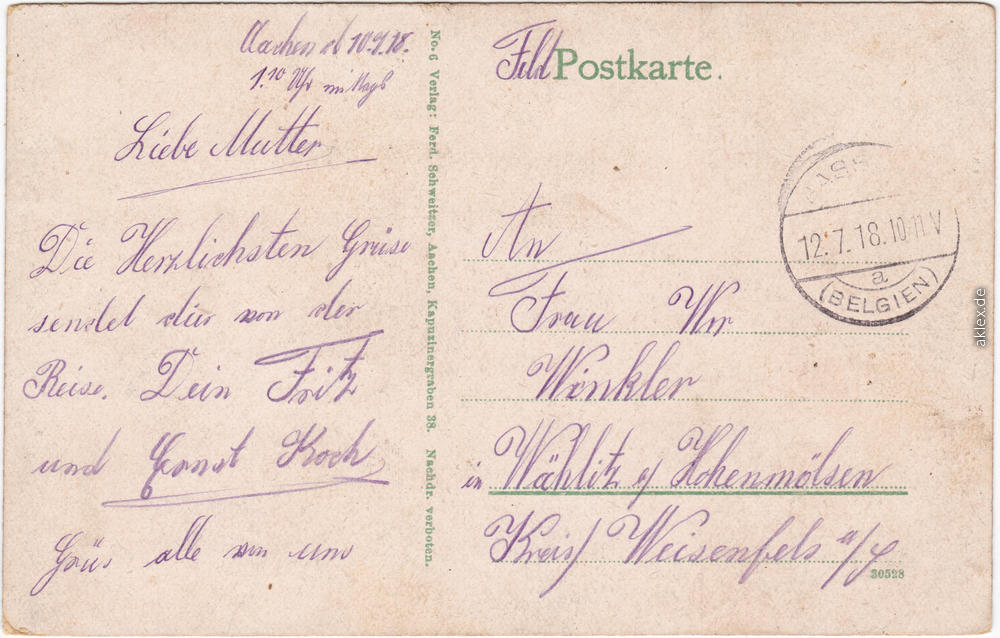 Aachen d 10.7.18.
1.10 Uhr
Liebe Mutter
Die Herzlichsten Grüse
sendet dür von der
Reise. Dein Fritz
und Ernst Koch
Grüs alle von uns
No. 6 Verlag: Ferd. Schweitzer, Aachen, Kapuzinergraben 38. Nachdr. verboten.
Feld Postkarte.
12.7.18.10-11V
a
(BELGIEN)
An
Frau Ww
Winkler
in Wählitz b/ Hohenmölsen
Kreis/ Weisenfels a/S
30528
aklex.de